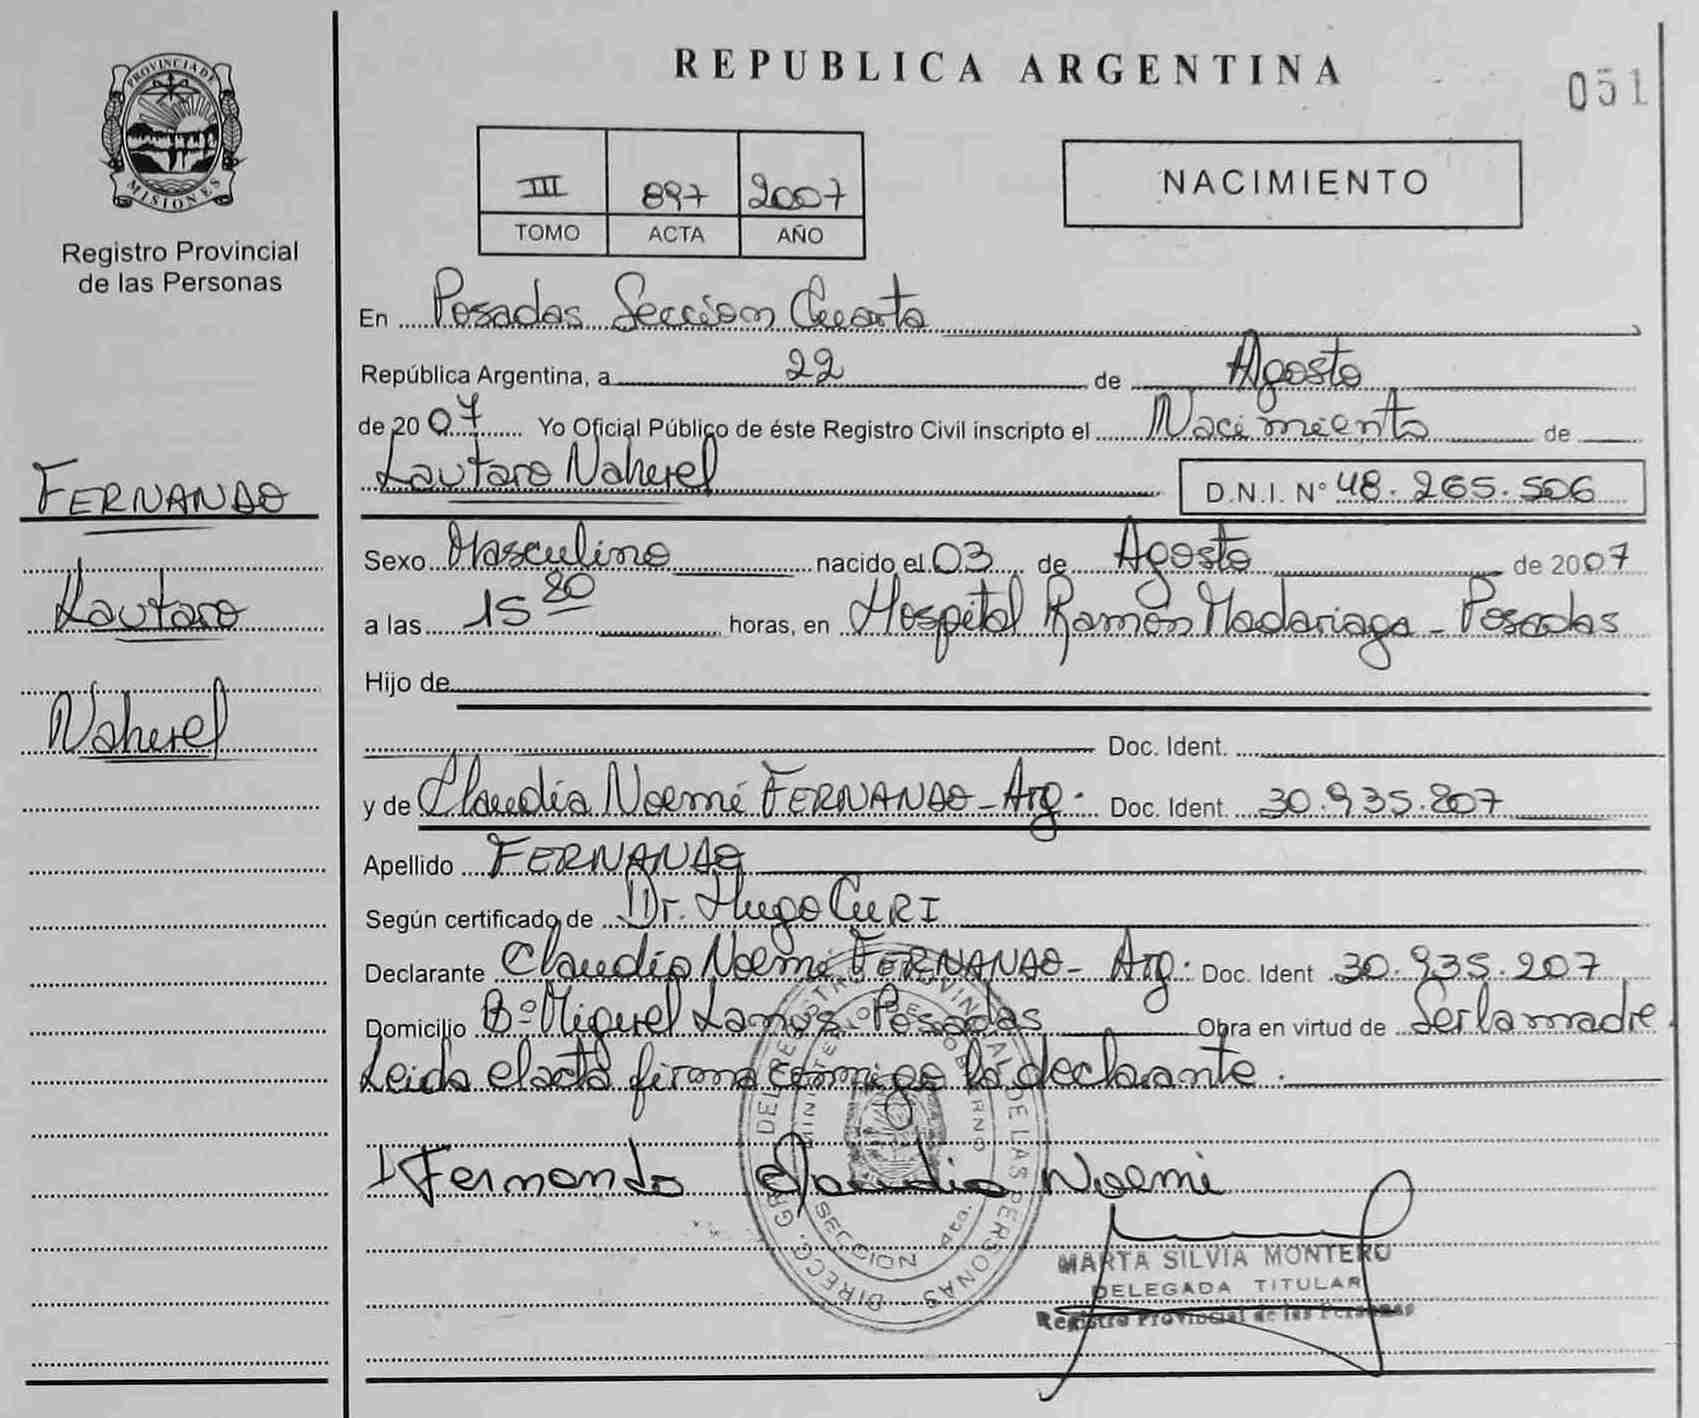 PROVINCIA DE
MISIONES
Registro Provincial
de las Personas
FERNANDO
Lautaro
Nahuel
REPUBLICA ARGENTINA
051
III 897 2007
TOMO ACTA AÑO
NACIMIENTO
En Posadas Seccion Cuarta
República Argentina, a 22 de Agosto
de 2007 Yo Oficial Público de éste Registro Civil inscripto el Nacimiento de
Lautaro Nahuel D.N.I. Nº 48.265.506
Sexo Masculino nacido el 03 de Agosto de 2007
a las 15 20 horas, en Hospital Ramón Madariaga - Posadas
Hijo de
Doc. Ident.
y de Claudia Noemí FERNANDO - Arg. Doc. Ident. 30.935.207
Apellido FERNANDO
Según certificado de Dr. Hugo CURI
Declarante Claudia Noemí FERNANDO - Arg. Doc. Ident 30.935.207
Domicilio Bº Miguel Lanus Posadas Obra en virtud de Ser la madre.
Leida el acta firma conmigo la declarante.
Fernando Claudia Noemi
DIRECC. GRAL. DEL REGISTRO PROVINCIAL DE LAS PERSONAS
MINISTERIO DE GOBIERNO
SECCION 4ta.
MARTA SILVIA MONTERO
DELEGADA TITULAR
Registro Provincial de las Personas